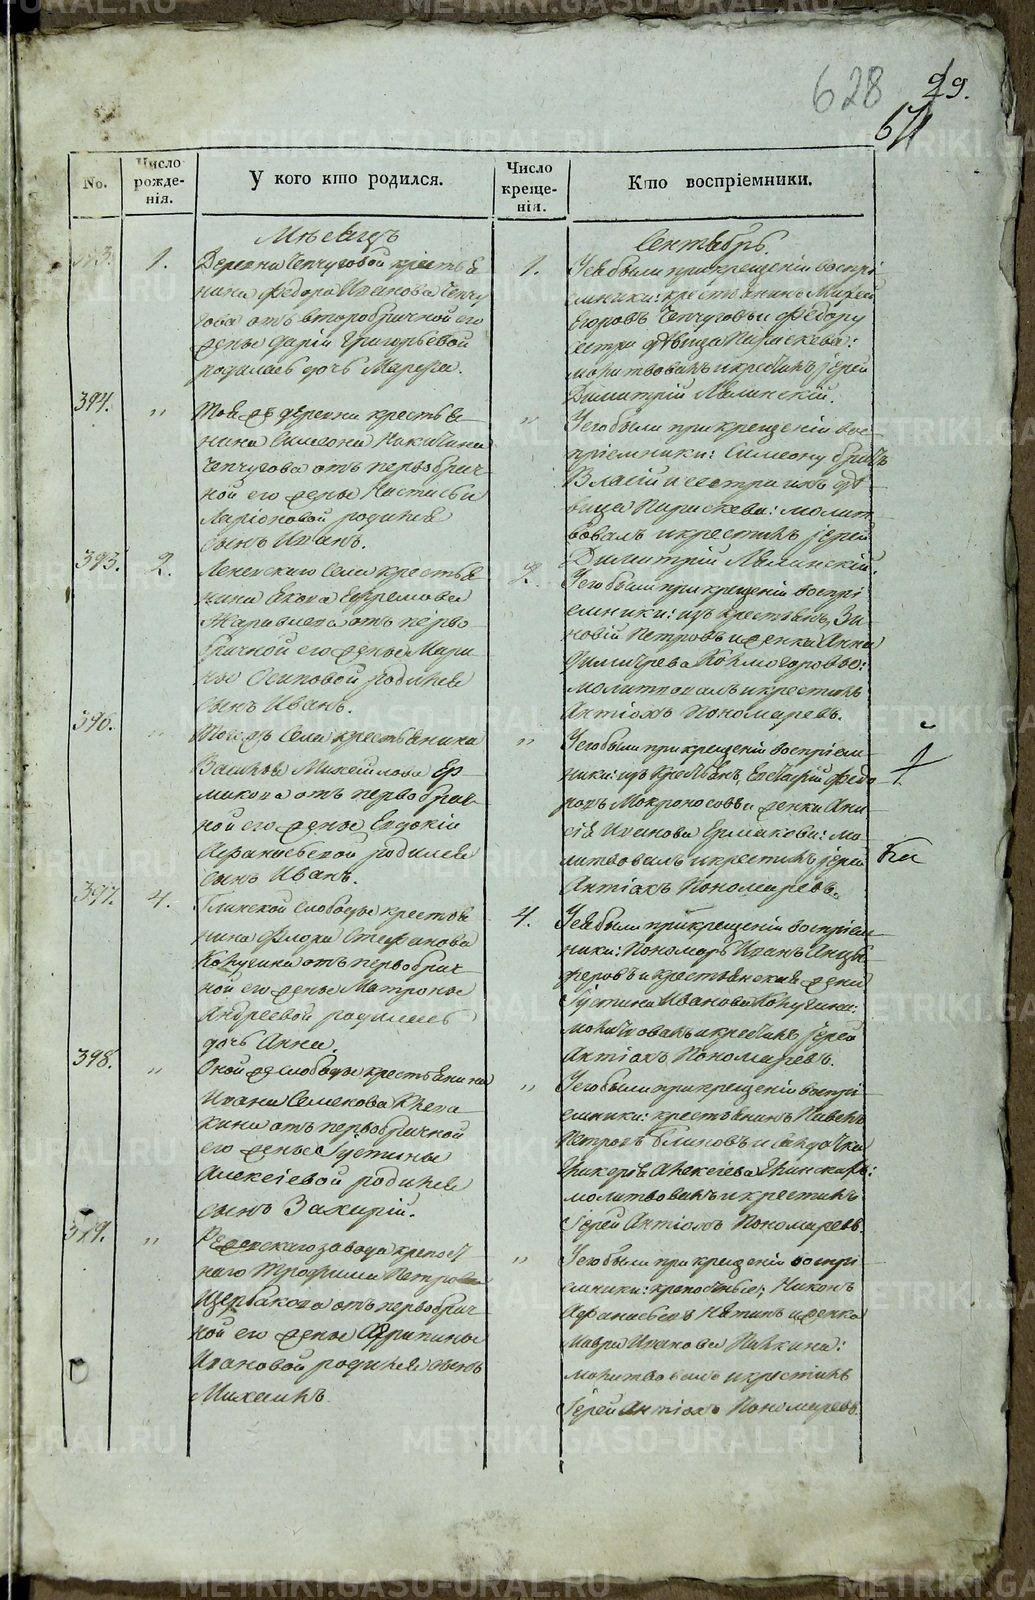 628
99.
No.
Число рожде-нія.
У кого кто родился.
Число креще-нія.
Кто воспріемники.
Мѣсяцъ
Сентябрь.
1.
Деревни Чепчуговой крестья
нина Федора Иванова Чепчу
гова отъ второбрачной его
жены Дарьи Григорьевой
родилась дочь Марѳа.
1.
У ея были при крещеніи воспрі
емники: крестьянинъ
Егоровъ Чепчуговъ и Федору
сестра дѣвица Параскева:
молитвовалъ и крестилъ Іерей
Димитрій
394.
"
Той же деревни крестья
нина Симеона
Чепчугова отъ первобрач
ной его жены Настасьи
Ларіоновой родился
сынъ Иванъ.
"
У его были при крещеніи вос
пріемники: Симеону братъ
Власій и сестра ихъ дѣ
вица Параскева: молит
вовалъ и крестилъ Іерей
Димитрій
395.
2.
Леневскаго Села крестья
нина Якова Ефремова
Журавлева отъ перво
брачной его жены Мари
ны Осиповой родился
сынъ Иванъ.
2.
У его были при крещеніи воспрі
емники: изъ крестьянъ Зи
новій Петровъ и женка Анна
Димитрева
молитвовалъ и крестилъ
Антіохъ Пономаревъ.
396.
"
Того жъ Села крестьянина
Михайлова Ер
макова отъ первобрач
ной его жены Евдокіи
Афанасьевой родился
сынъ Иванъ.
"
У его были при крещеніи воспріем
ники: изъ крестьянъ Федо
ровъ Мокроносовъ и женка
Иванова Ермакова: мо
литвовалъ и крестилъ Іерей
Антіохъ Пономаревъ.
397.
4.
Глинской слободы крестья
нина Флора Стефанова
отъ первобрач
ной его жены Матроны
Андреевой родилась
дочь Анна.
4.
У ея были при крещеніи воспріем
ники: Пономарь Иванъ Анцы
феровъ и крестьянская жена
Іустина Иванова
молитвовалъ и крестилъ Іерей
Антіохъ Пономаревъ.
398.
"
Оной же слободы крестьянина
Ивана Семенова
отъ первобрачной
его жены Іустины
Алексіевой родился
сынъ Захарій.
"
У его были при крещеніи воспрі
емники: крестьянинъ Павелъ
Петровъ Блиновъ и
Алексіева
молитвовалъ и крестилъ
Іерей Антіохъ Пономаревъ.
399.
"
Режевскаго завода крѣпост
наго Трофима Петрова
Щербакова отъ первобрач
ной его жены Агрипины
Ивановой родился сынъ
Михаилъ.
"
У его были при крещеніи воспрі
емники: крѣпостные: Никонъ
Афанасьевъ и женка
Мавра Иванова
молитвовалъ и крестилъ
Іерей Антіохъ Пономаревъ.
METRIKI.GASO-URAL.RU